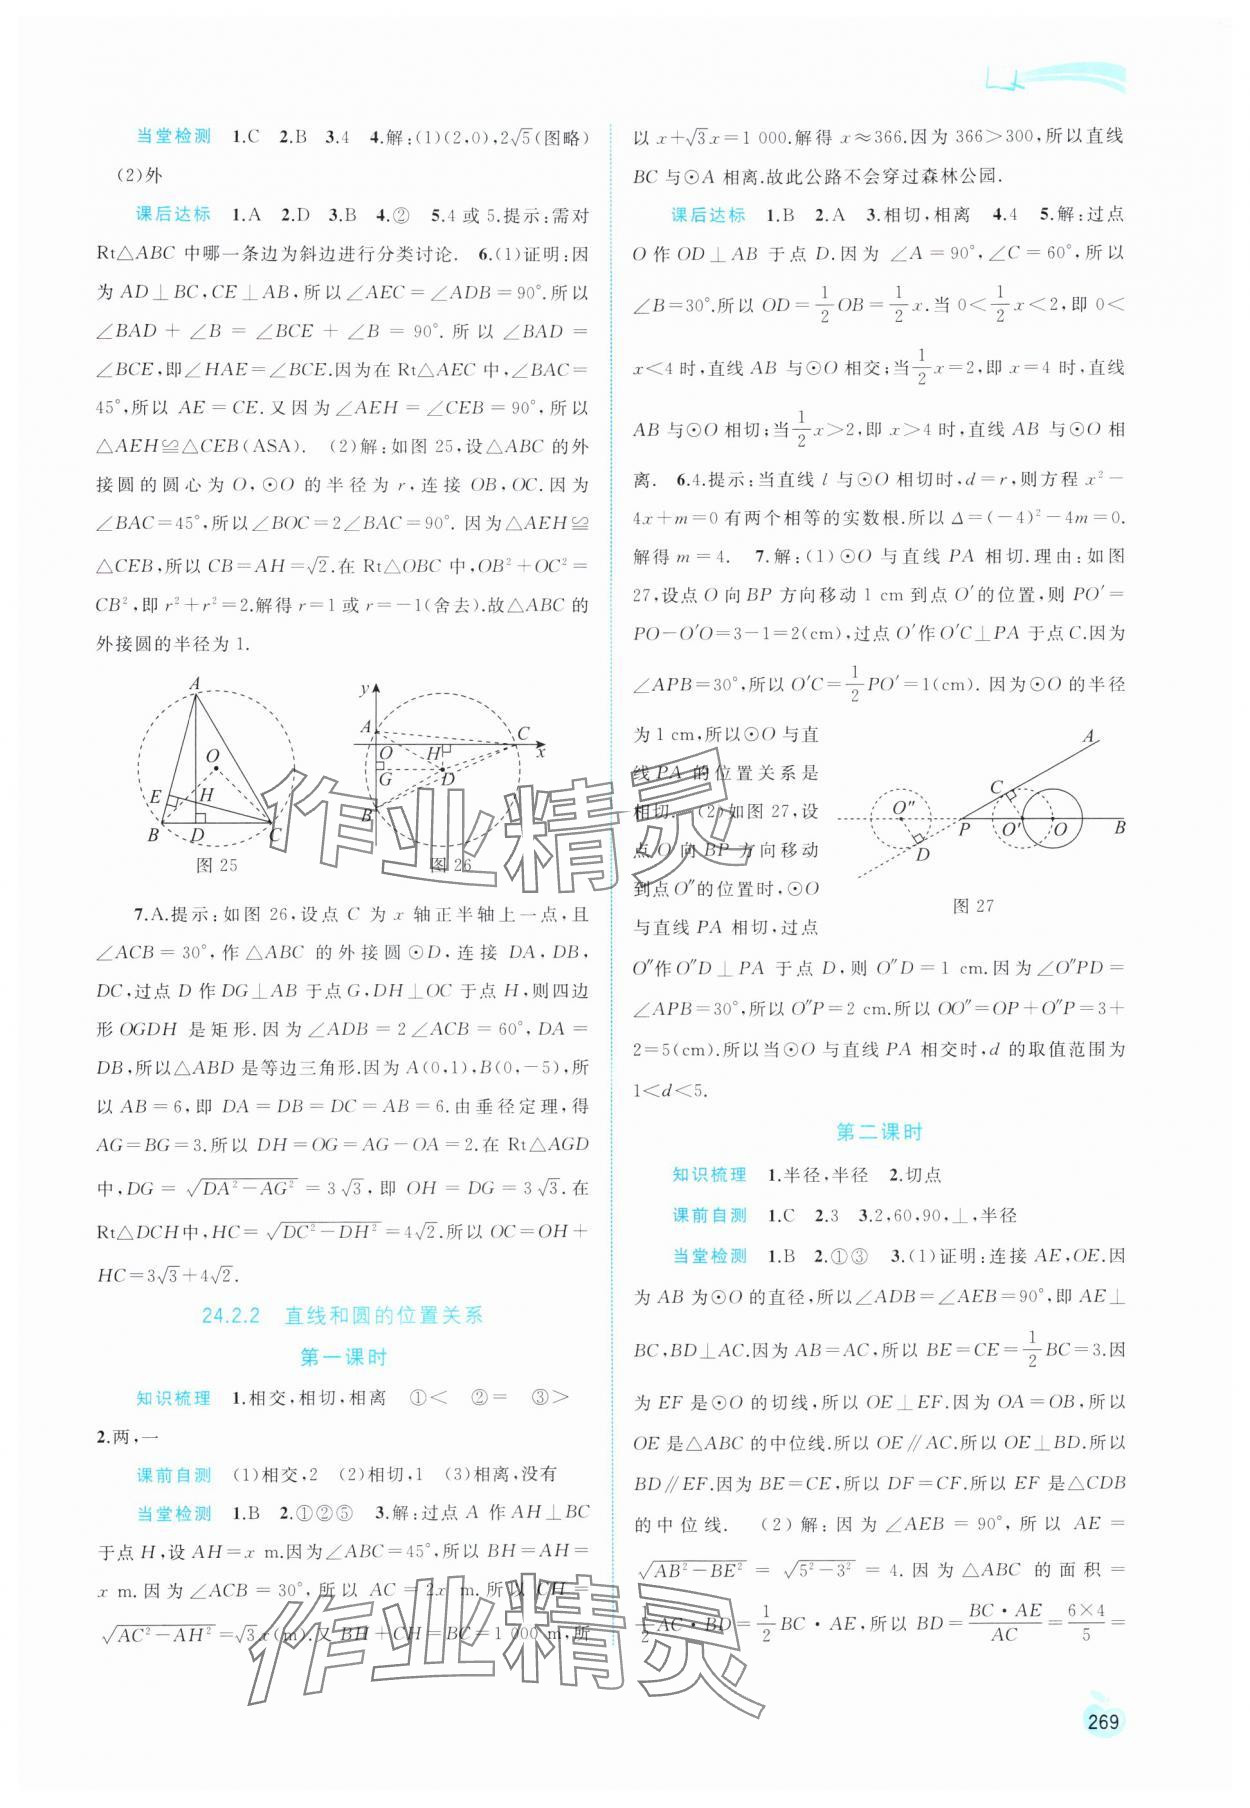 当堂检测 1.C 2.B 3.4 4.解:(1)(2,0),2√5(图略)
(2)外
课后达标 1.A 2.D 3.B 4.② 5.4 或 5.提示:需对
Rt△ABC 中哪一条边为斜边进行分类讨论. 6.(1)证明:因
为 AD⊥BC,CE⊥AB,所以∠AEC=∠ADB=90°.所以
∠BAD+∠B=∠BCE+∠B=90°.所以∠BAD=
∠BCE,即∠HAE=∠BCE.因为在 Rt△AEC 中,∠BAC=
45°,所以 AE=CE.又因为∠AEH=∠CEB=90°,所以
△AEH≌△CEB(ASA). (2)解:如图 25,设△ABC 的外
接圆的圆心为 O,⊙O 的半径为 r,连接 OB,OC.因为
∠BAC=45°,所以∠BOC=2∠BAC=90°.因为△AEH≌
△CEB,所以 CB=AH=√2.在 Rt△OBC 中,OB²+OC²=
CB²,即 r²+r²=2.解得 r=1 或 r=-1(舍去).故△ABC 的
外接圆的半径为 1.
A
O
E
H
B
D
C
图 25
y
A
O
H
C
x
G
D
B
图 26
7.A.提示:如图 26,设点 C 为 x 轴正半轴上一点,且
∠ACB=30°,作△ABC 的外接圆⊙D,连接 DA,DB,
DC,过点 D 作 DG⊥AB 于点 G,DH⊥OC 于点 H,则四边
形 OGDH 是矩形.因为∠ADB=2∠ACB=60°,DA=
DB,所以△ABD 是等边三角形.因为 A(0,1),B(0,-5),所
以 AB=6,即 DA=DB=DC=AB=6.由垂径定理,得
AG=BG=3.所以 DH=OG=AG-OA=2.在 Rt△AGD
中,DG=√(DA²-AG²)=3√3,即 OH=DG=3√3.在
Rt△DCH中,HC=√(DC²-DH²)=4√2.所以 OC=OH+
HC=3√3+4√2.
24.2.2 直线和圆的位置关系
第一课时
知识梳理 1.相交,相切,相离 ①< ②= ③>
2.两,一
课前自测 (1)相交,2 (2)相切,1 (3)相离,没有
当堂检测 1.B 2.①②⑤ 3.解:过点 A 作 AH⊥BC
于点 H,设 AH=x m.因为∠ABC=45°,所以 BH=AH=
x m.因为∠ACB=30°,所以 AC=2x m.所以 CH=
√(AC²-AH²)=√3x(m).又 BH+CH=BC=1 000 m,所
以 x+√3x=1 000.解得 x≈366.因为 366>300,所以直线
BC 与⊙A 相离.故此公路不会穿过森林公园.
课后达标 1.B 2.A 3.相切,相离 4.4 5.解:过点
O 作 OD⊥AB 于点 D.因为∠A=90°,∠C=60°,所以
∠B=30°.所以 OD=1/2OB=1/2x.当 0<1/2x<2,即 0<
x<4 时,直线 AB 与⊙O 相交;当1/2x=2,即 x=4 时,直线
AB 与⊙O 相切;当1/2x>2,即 x>4 时,直线 AB 与⊙O 相
离. 6.4.提示:当直线 l 与⊙O 相切时,d=r,则方程 x²-
4x+m=0 有两个相等的实数根.所以 Δ=(-4)²-4m=0.
解得 m=4. 7.解:(1)⊙O 与直线 PA 相切.理由:如图
27,设点 O 向 BP 方向移动 1 cm 到点 O′的位置,则 PO′=
PO-O′O=3-1=2(cm),过点 O′作 O′C⊥PA 于点 C.因为
∠APB=30°,所以 O′C=1/2PO′=1(cm).因为⊙O 的半径
为 1 cm,所以⊙O 与直
线 PA 的位置关系是
相切. (2)如图 27,设
点 O 向 BP 方向移动
到点 O″的位置时,⊙O
与直线 PA 相切,过点
A
C
O″
P
O′
O
B
D
图 27
O″作 O″D⊥PA 于点 D,则 O″D=1 cm.因为∠O″PD=
∠APB=30°,所以 O″P=2 cm.所以 OO″=OP+O″P=3+
2=5(cm).所以当⊙O 与直线 PA 相交时,d 的取值范围为
1<d<5.
第二课时
知识梳理 1.半径,半径 2.切点
课前自测 1.C 2.3 3.2,60,90,⊥,半径
当堂检测 1.B 2.①③ 3.(1)证明:连接 AE,OE.因
为 AB 为⊙O 的直径,所以∠ADB=∠AEB=90°,即 AE⊥
BC,BD⊥AC.因为 AB=AC,所以 BE=CE=1/2BC=3.因
为 EF 是⊙O 的切线,所以 OE⊥EF.因为 OA=OB,所以
OE 是△ABC 的中位线.所以 OE∥AC.所以 OE⊥BD.所以
BD∥EF.因为 BE=CE,所以 DF=CF.所以 EF 是△CDB
的中位线. (2)解:因为∠AEB=90°,所以 AE=
√(AB²-BE²)=√(5²-3²)=4.因为△ABC 的面积=
1/2AC·BD=1/2BC·AE,所以 BD=BC·AE/AC=6×4/5=
269
作业精灵
作业精灵